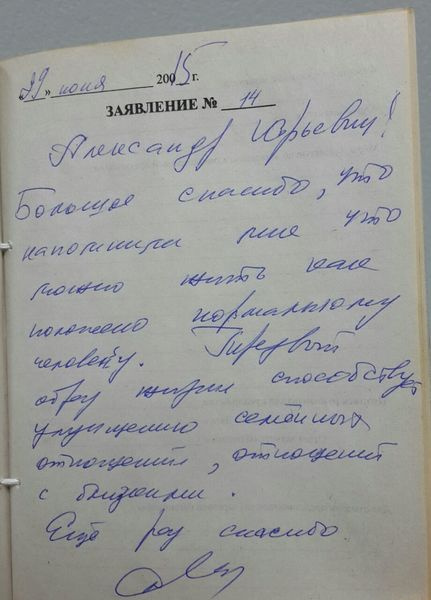 «29» июня 2015 г.
ЗАЯВЛЕНИЕ № 14
Александр Юрьевич!
Большое спасибо, что
напомнили мне что
можно жить как
положено нормальному
человеку. Трезвый
образ жизни способствует
улучшению семейных
отношений, отношений
с близкими.
Ещё раз спасибо.